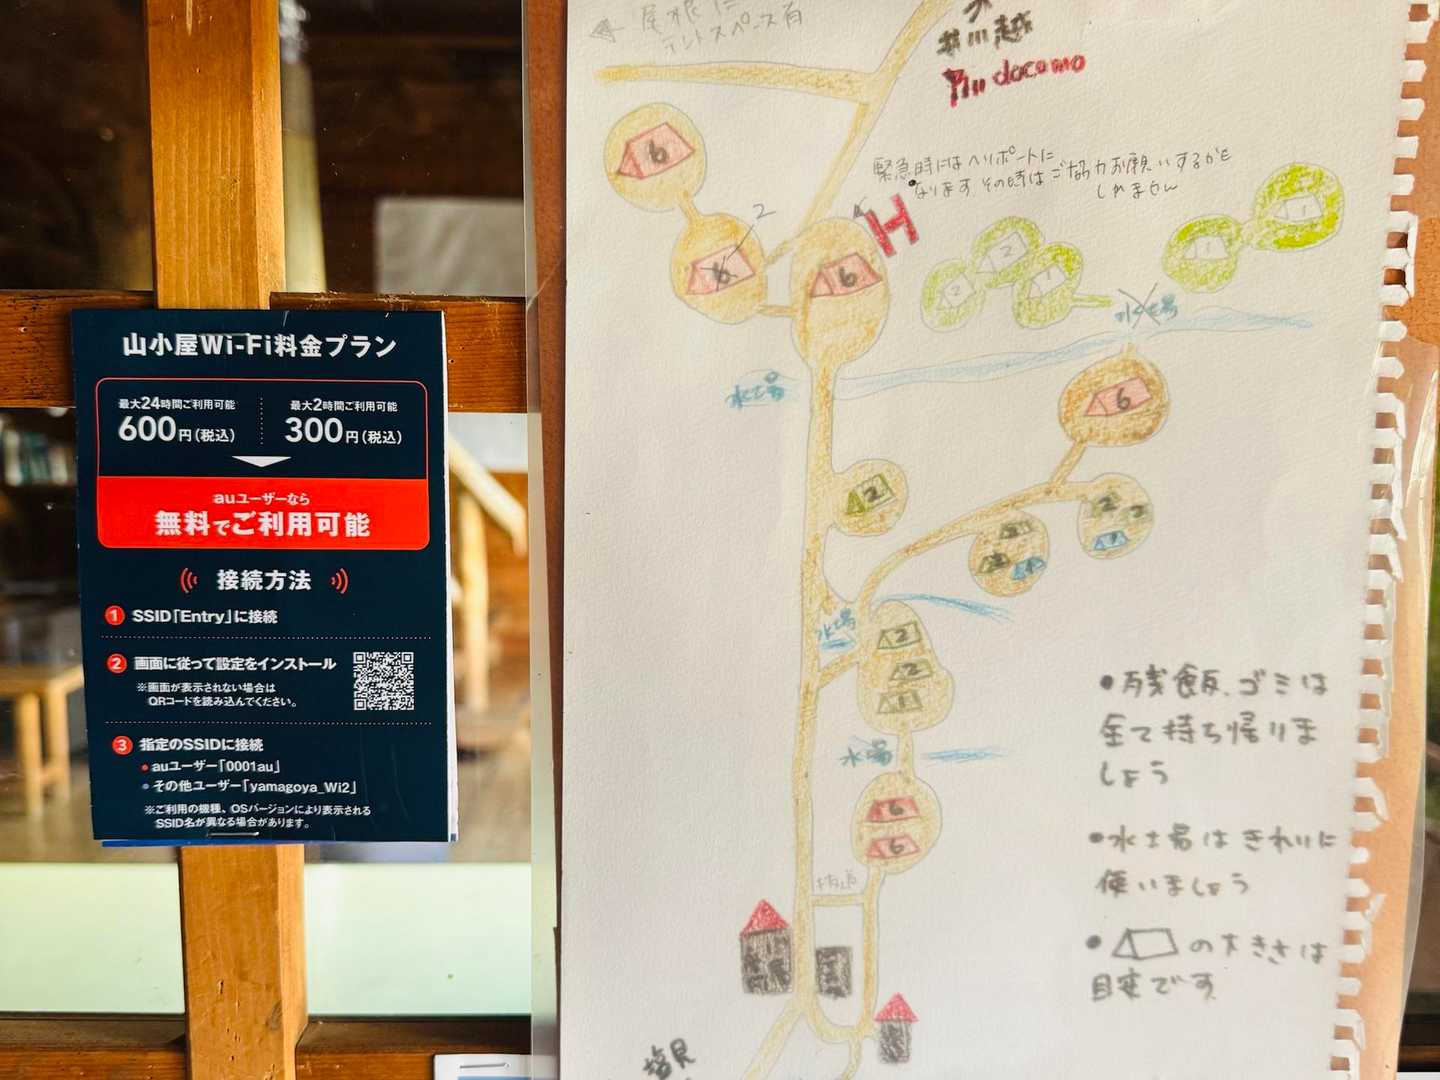 山小屋Wi-Fi料金プラン
最大24時間ご利用可能
600円(税込)
最大2時間ご利用可能
300円(税込)
auユーザーなら
無料でご利用可能
接続方法
1 SSID「Entry」に接続
2 画面に従って設定をインストール
※画面が表示されない場合は
QRコードを読み込んでください。
3 指定のSSIDに接続
・auユーザー「0001au」
・その他ユーザー「yamagoya_Wi2」
※ご利用の機種、OSバージョンにより表示される
SSID名が異なる場合があります。
屋根に
テントスペース有
井川越
docomo
緊急時にはヘリポートに
なります その時はご協力お願いするかも
しれません
H
6
2
6
6
2
1
2
1
1
1
水場
水場
6
2
2
2
2
2
水場
2
2
1
水場
6
6
塩見
・残飯、ゴミは
全て持ち帰りま
しょう
・水場はきれいに
使いましょう
・の大きさは
目安です